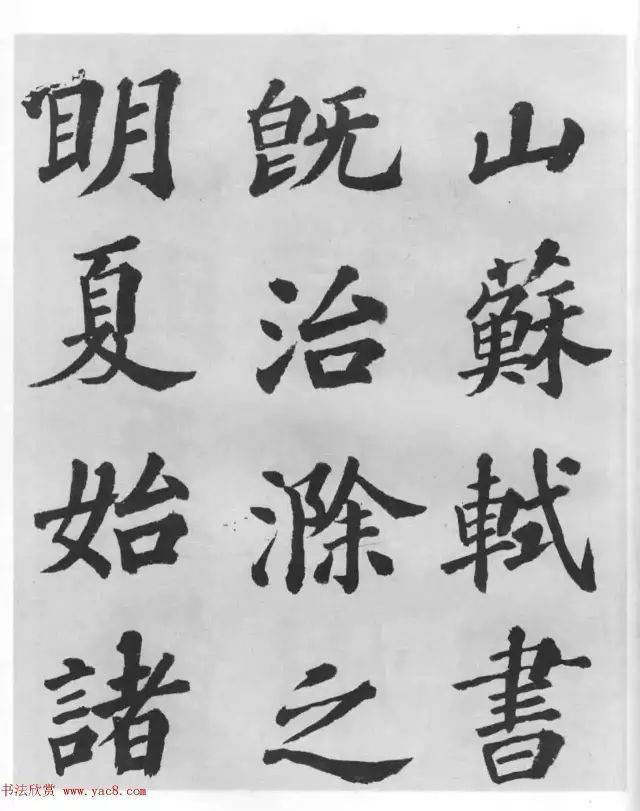 山蘇軾書
既治滁之
明夏始諸
书法欣赏 www.yac8.com